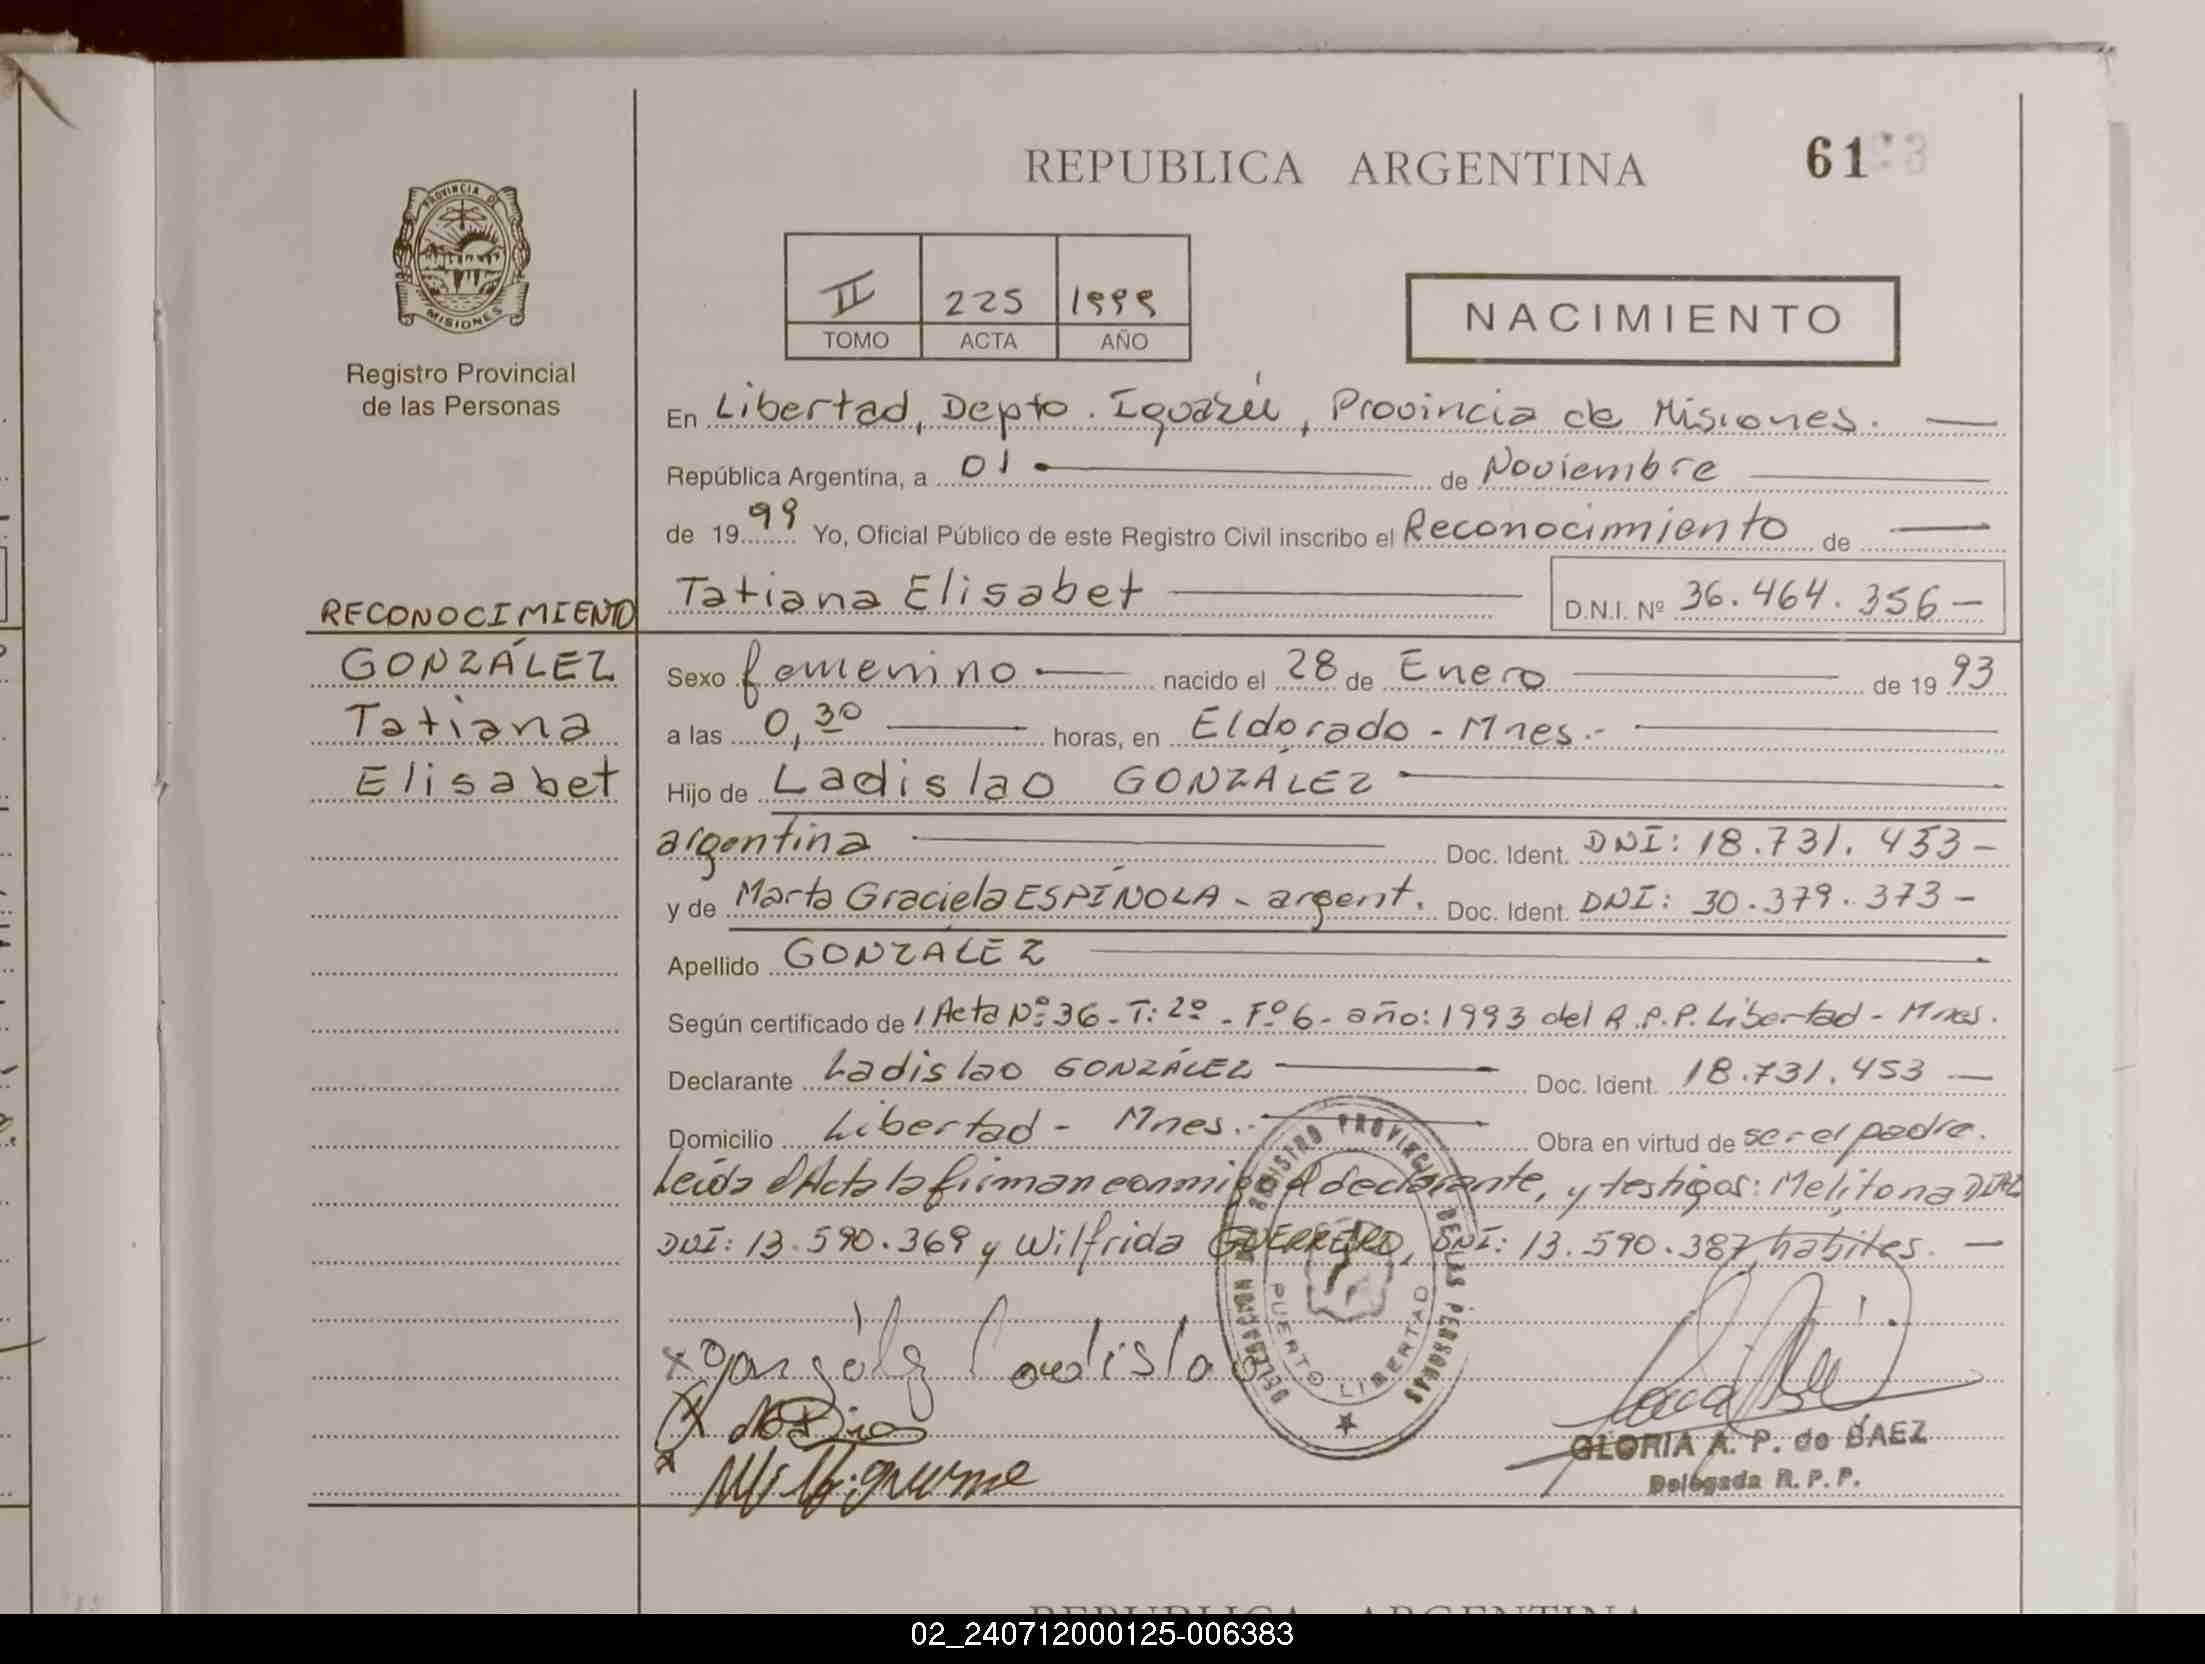 REPUBLICA ARGENTINA
61
PROVINCIA DE
MISIONES
Registro Provincial
de las Personas
II 225 1999
TOMO ACTA AÑO
NACIMIENTO
En Libertad, Depto. Iguazú, Provincia de Misiones.
República Argentina, a 01 de Noviembre
de 1999 Yo, Oficial Público de este Registro Civil inscribo el Reconocimiento de
Tatiana Elisabet D.N.I. Nº 36.464.356
RECONOCIMIENTO
GONZÁLEZ
Tatiana
Elisabet
Sexo femenino nacido el 28 de Enero de 1993
a las 0,30 horas, en Eldorado - Mnes.-
Hijo de Ladislao GONZÁLEZ
argentina Doc. Ident. DNI: 18.731.453-
y de Marta Graciela ESPÍNOLA - argent. Doc. Ident. DNI: 30.379.373-
Apellido GONZÁLEZ
Según certificado de 1 Acta Nº 36 - T: 2º - Fº 6 - año: 1993 del R.P.P. Libertad - Mnes.
Declarante Ladislao GONZÁLEZ Doc. Ident. 18.731.453
Domicilio Libertad - Mnes.- Obra en virtud de ser el padre.
Leída el Acta la firman conmigo el declarante, y testigos: Melitona DIAZ
DNI: 13.590.369 y Wilfrida GUERRERO, DNI: 13.590.387 hábiles.
DELEGACION REGISTRO PROVINCIAL DE LAS PERSONAS
PUERTO LIBERTAD
GLORIA A. P. de BAEZ
Delegada R. P. P.
REPUBLICA ARGENTINA
02_240712000125-006383